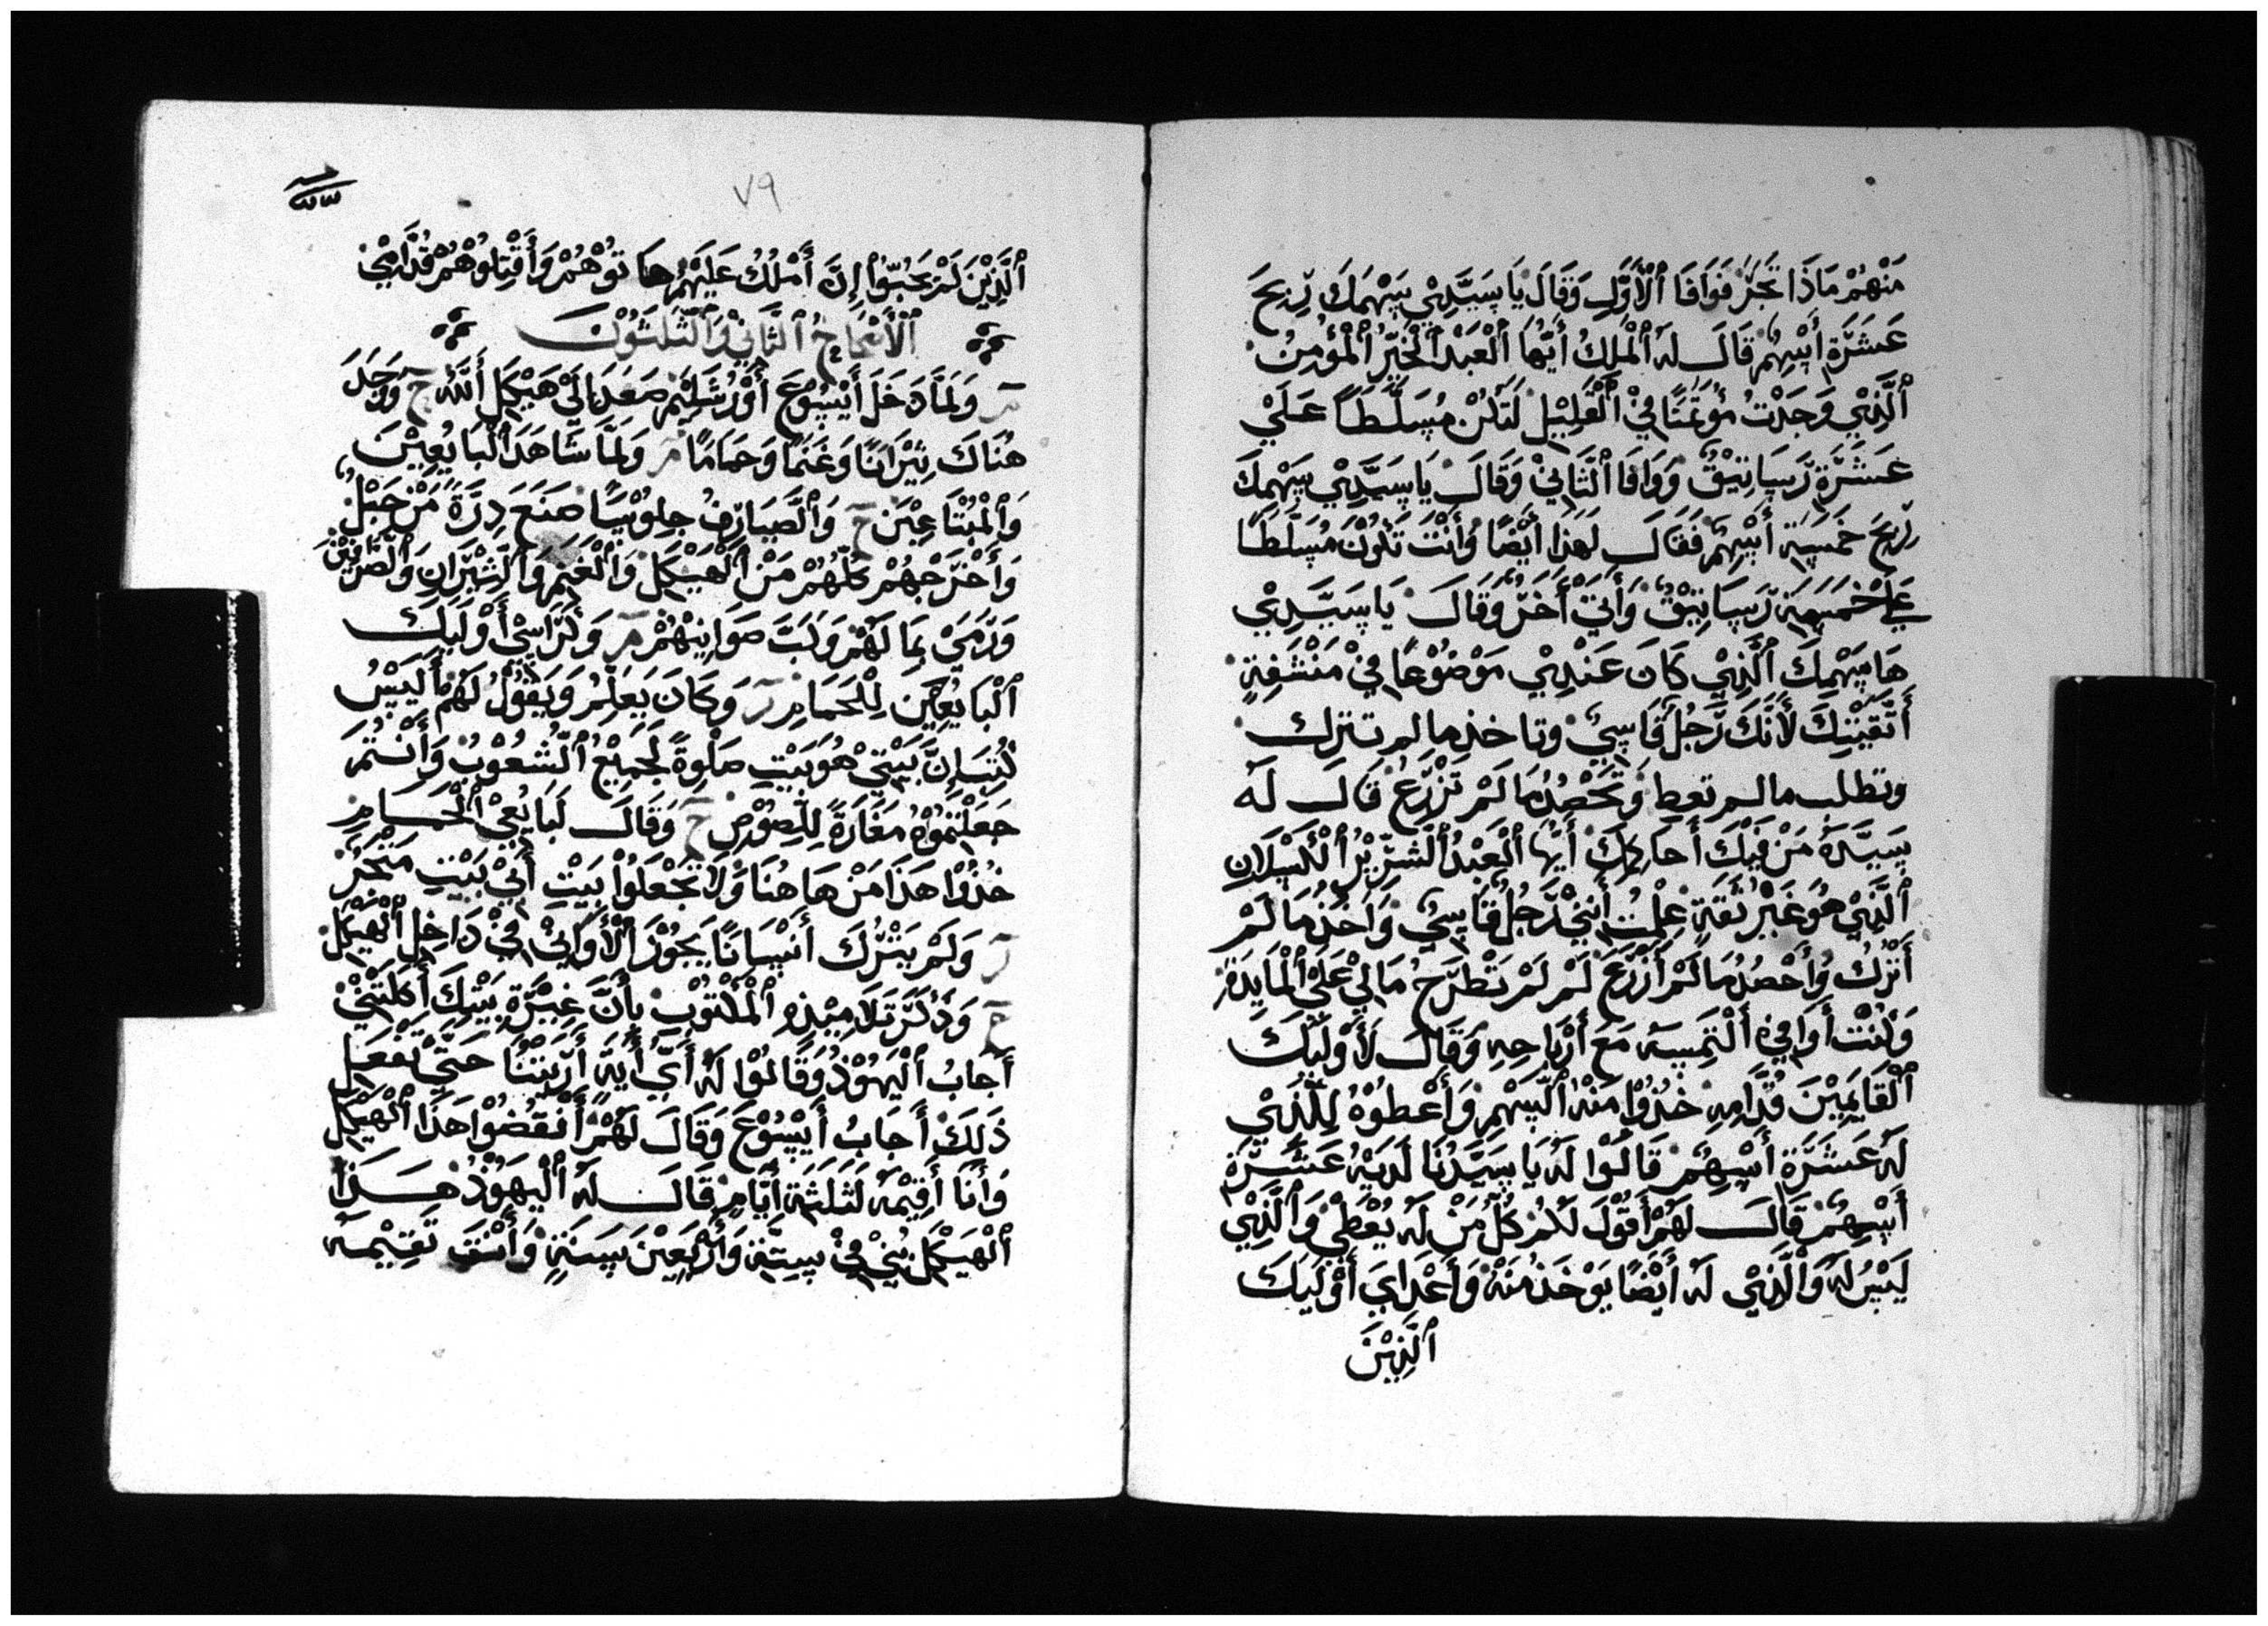 مَنْهُمْ مَاذَا تَجَرَ فَوَافَا ٱلْأَوَّلِ وَقَالَ يَا سَيَّدِيْ سَهْمَكَ رِبحَ
عَشَرَةِ أَسْهُم قَالَ لَهُ ٱلْمَلِكُ أَيُّهَا ٱلْعَبْدُ ٱلْخَيِّرُ ٱلْمُؤْمِنُ
ٱلَّذِيْ وَجَدْتُ مُؤتَمَنًا فِيْ ٱلْقَلِيْلِ لَتَكُنْ مُسَلَّطًا عَلَيْ
عَشَرَةِ رَسَاتِيْقُ وَوَافَا ٱلثَّانِيْ وَقَالَ يَا سَيَّدِيْ سَهْمِكَ
رِبحَ خَمْسِة أَسْهِم فَقَالَ لَهَذَا أَيْضًا وَأَنْتَ تَكُوْنَ مُسَلَّطًا
عَلَيْ خَمْسِة رَسَاتِيْقُ وَأَتَيْ أَخَرُ وَقَالَ يَا سَيَّدِيْ
هَا سَهْمِكَ ٱلَّذِيْ كَانَ عَنْدِيْ مَوْضُوْعًا فِيْ مَنْشَفِةٍ
أَتَّقَيْتِكَ لَأَنَّكَ رَّجُلٌ قَاسِيُ وتاخذ ما لم تترك
وتطلب ما لم تعط وَتَحْصِدُ مَا لَمْ تَزْرَعُ قَالَ لَهُ
سَيَّدَهُ مَنْ فِيْكَ أَحَاكِمَكَ أَيُّهَا ٱلْعَبْدُ ٱلشَّرِّيْرُ ٱلْكَسْلَانِ
ٱلَّذِيْ هُوَ غَيْرُ ثَقَةٍ عِلْمْتُ أَنِّيْ رَّجُلٌ قَاسِيُ وَأَخَذُ مَا لَمْ
أَتْرُكْ وَأَحْصُدُ مَا لَمْ أَزْرَعْ لَمْ لَمْ تَطْرَحْ مَالِيْ عَلَيْ ٱلْمَايَدَةِ
وَكُنْتُ أَوَافِيْ أَلْتَمِسَهُ مَعَ أَرْبَاحِهِ وَقَالَ لَأُوْلَيْكَ
ٱلْقَايَمِيْنَ قُدَّامِهِ خُذُوْا مَنْهُ ٱلسَّهْمِ وَأَعْطُوْهُ لِلَّذِيْ
لَهُ عَشَرَةِ أَسْهُمْ قَالُوْا لَهُ يَا سَيَّدُنَا لَدَيْهُ عَشَرَةِ
أَسْهُمْ قَالَ لَهُمْ أَقُوْلَ لَكُمْ كُلُّ مَنْ لَهُ يُعْطَيْ وَٱلَّذِيْ
لَيْسُ لَهُ وَٱلَّذِيْ لَهُ أَيْضًا يَوْخَذُ مَنْهُ وَأَعْدَايَ أُوْلَيْكَ
ٱلَّذِيْنَ
٧٩
ٱلَّذِيْنَ لَمْ يَحُبُّوْا إِنَّ أَمْلُكُ عَلَيْهُمْ هَاتُوْهُمْ وَأَقْتِلُوْهُمْ قُدَّامِيْ
ٱلْأَصْحَاحُ ٱلثَّانِيْ وَٱلثَّلَثُوْنَ
مر وَلَمَّا دَخَلَ أَيْسُوْعَ أَوْرُشَلِيْمَ صَعَدَ إِلَيْ هَيْكَلِ أَللَّهُ ح وَوَجَدَ
هُنَاكَ ثِيْرَانًا وَغَنَمًا وَحَمَامًا مر وَلَمَّا شَاهَدَ ٱلْبَايُعِيْنَ
وَٱلْمُبْتَاعِيْنَ ح وَٱلصَّيَارِفُ جِلُوْسًا صَنَعَ دِرَّةً مَنْ حَبْلُ
وَأَخْرَجَهُمْ كُلُّهُمْ مَنْ ٱلْهَيْكَلِ وَٱلْغَنِمِ وَٱلثِّيْرَانِ وَٱلصَّرَافِيْنَ
وَرَمَيْ بِمَا لَهُمْ وَكَبَّ صَوَانِيْهُمْ مر وَكَرَاسْيْ أُوْلَيْكَ
ٱلْبَايُعِيْنَ لِلْحَمَامِ مر وَكَانَ يَعَلِّمُ وَيَقُوْلُ لَهُمْ أَلَيْسُ
كُتِبَ إِنَّ بَيْتِيْ هُوَ بَيْتِ صَلْوةً لَجَمِيْعُ ٱلشُّعُوْبْ وَأَنْتُمْ
جَعَلْتُمُوْهُ مَغَارَةً لِلّصُوْصِ ح وَقَالَ لَبَايُعِيْ ٱلْحَمَامِ
خُذُوْا هَذَا مَنْ هَا هُنَا وَلَا تَجْعَلُوْا بَيْتِ أَبِيْ بَيْتِ مَتْجَرُ
ر وَلَمْ يَتْرُكَ أَنْسَانًا يَجُوْزَ ٱلْأَوَانِيْ فِيْ دَاخِلِ ٱلْهَيْكَلِ
ح وَذَكَرَ تَلَامِيْذِهِ ٱلْمَكْتُوْبِ بِأَنَّ غَيْرَةِ بَيْتِكَ أَكَلَتْنِيْ
أَجَابُ ٱلْيَهُوْذُ وَقَالُوْا لَهُ أَيَّ أَيَةً أَرَيْتَنَا حَتَّيْ تَفْعَلِ
ذَلَكَ أَجَابُ أَيْسُوْعَ وَقَالَ لَهُمْ أَنْقُضُوْا هَذَا ٱلْهَيْكَلِ
وَأَنَا أَقِيْمُهُ لَثَلَثَة أَيَّامٍ قَالَ لَهُ ٱلْيَهُوْذُ هَذَا
ٱلْهَيْكَلِ بُنِيْ فِيْ سِتَّة وَأَرْبَعِيْنَ سَنَةٍ وَأَنْتَ تَقِيْمِهُ